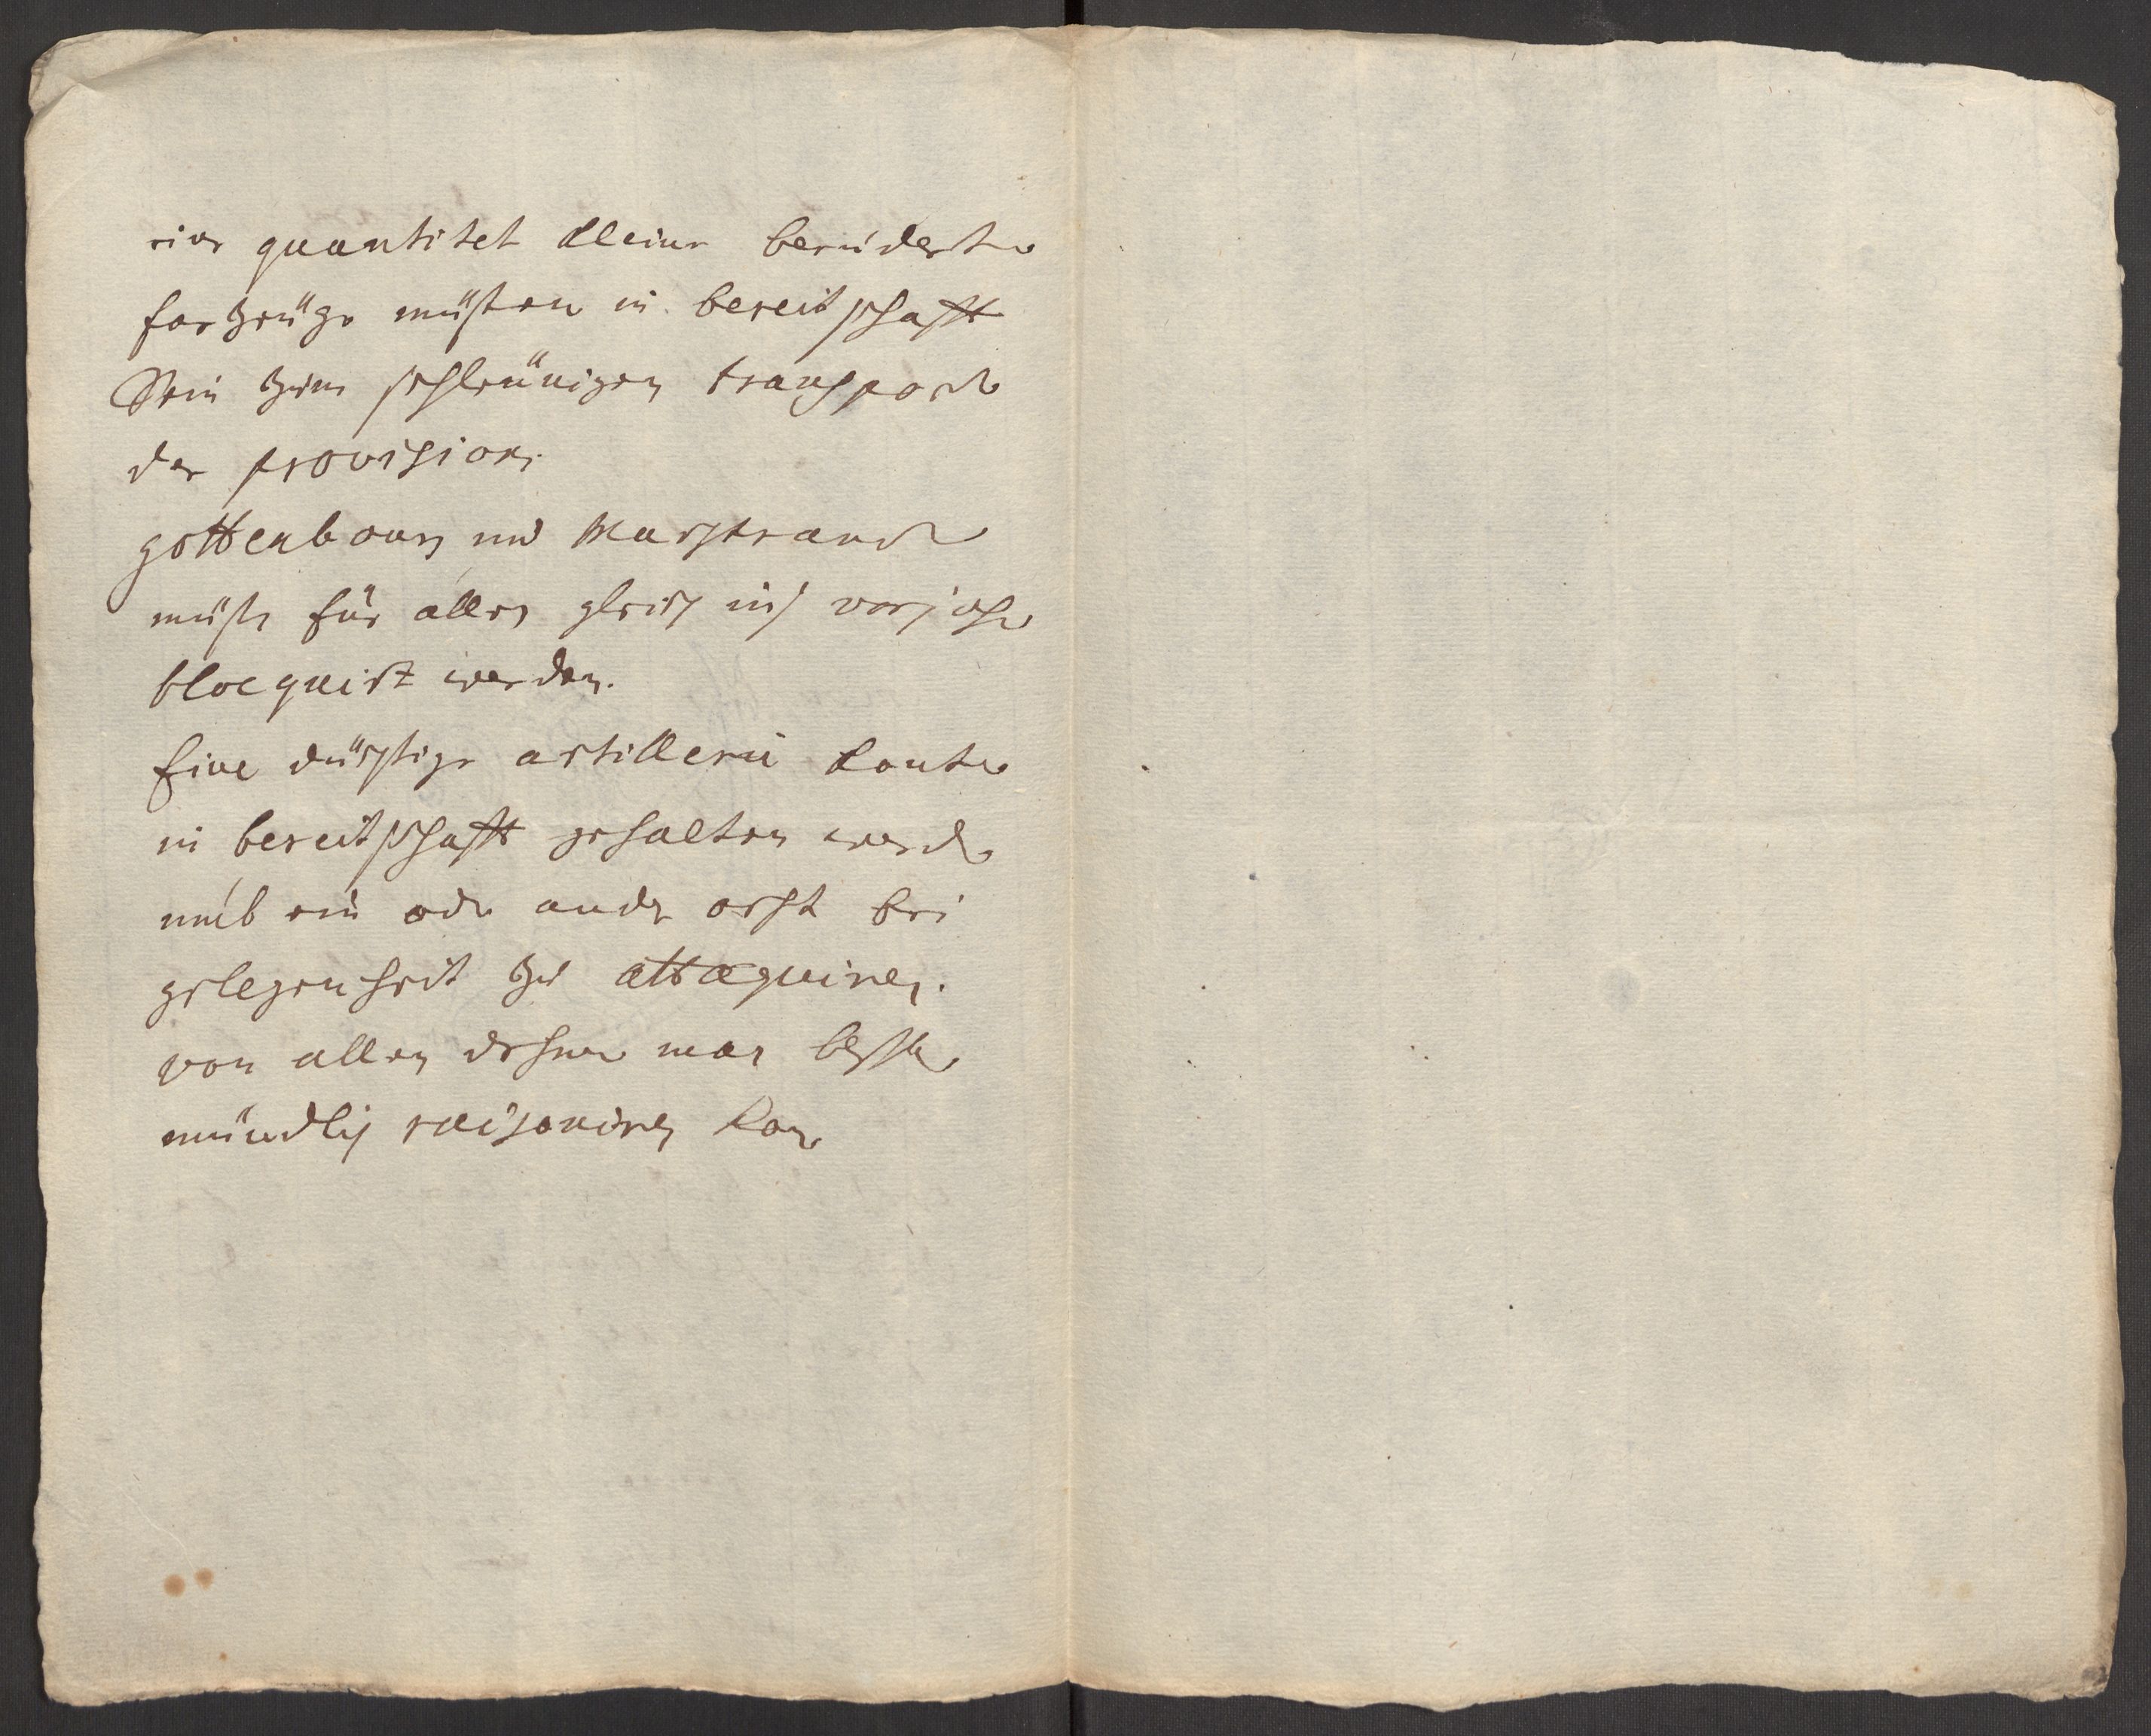 eine quantitet kleine beruderte
farzeüge müsten in bereitschafft
Sein zum schleünigen transport
der provision.
gottenbourg und Marstrand
müste für allen gleich ins vorjahr
bloequirt werden.
Eine düchtige artillerii konte
in bereitschafft gehalten werde
umb ein oder ander orth bei
gelegenheit zu attaequiren.
von allen dehme man beste
mündlich raisoniren kan